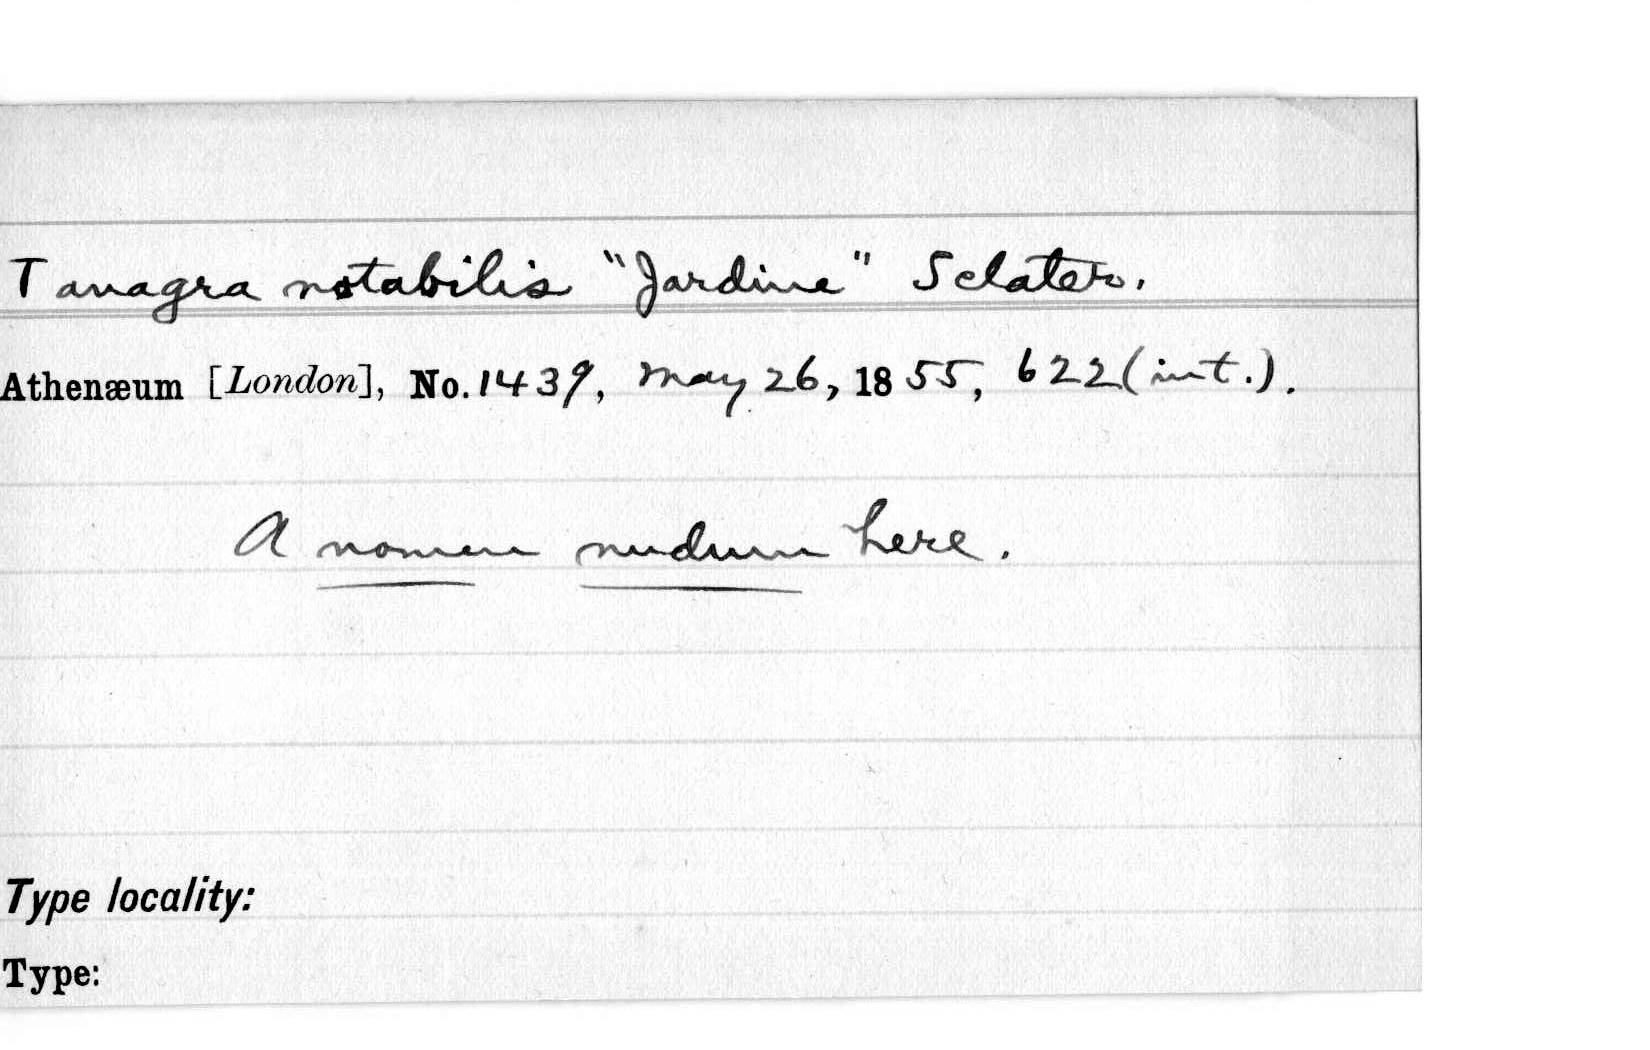 Tanagra notabilis "Jardine" Sclater.
Athenæum [London], No. 1439, May 26, 1855, 622 (int.).
A nomen nudum here.
Type locality:
Type: